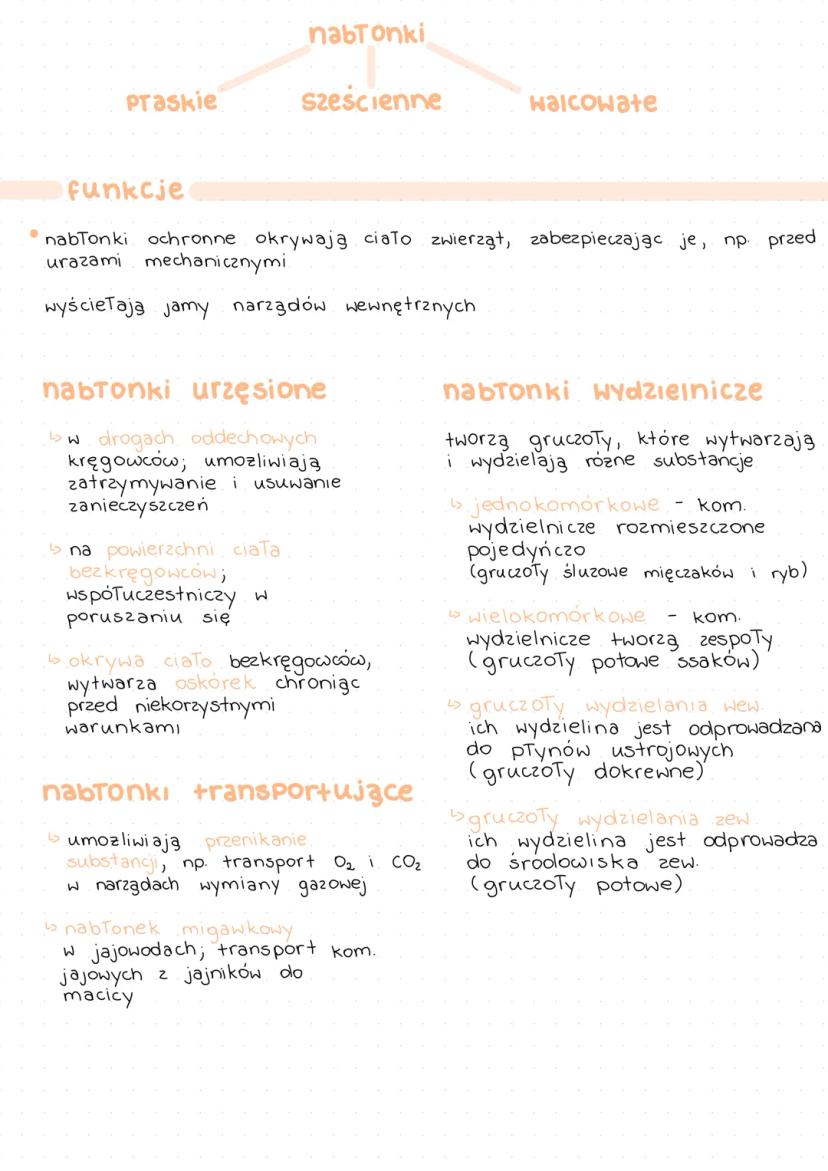 nabłonki
płaskie sześcienne walcowate
funkcje
nabłonki ochronne okrywają ciało zwierząt, zabezpieczając je, np. przed
urazami mechanicznymi
wyściełają jamy narządów wewnętrznych
nabłonki urzęsione
↳ w drogach oddechowych
kręgowców; umożliwiają
zatrzymywanie i usuwanie
zanieczyszczeń
↳ na powierzchni ciała
bezkręgowców;
współuczestniczy w
poruszaniu się
↳ okrywa ciało bezkręgowców,
wytwarza oskórek chroniąc
przed niekorzystnymi
warunkami
nabłonki transportujące
↳ umożliwiają przenikanie
substancji, np. transport O₂ i CO₂
w narządach wymiany gazowej
↳ nabłonek migawkowy
w jajowodach; transport kom.
jajowych z jajników do
macicy
nabłonki wydzielnicze
tworzą gruczoły, które wytwarzają
i wydzielają różne substancje
↳ jednokomórkowe - kom.
wydzielnicze rozmieszczone
pojedyńczo
(gruczoły śluzowe mięczaków i ryb)
↳ wielokomórkowe - kom.
wydzielnicze tworzą zespoły
(gruczoły potowe ssaków)
↳ gruczoły wydzielania wew.
ich wydzielina jest odprowadzana
do płynów ustrojowych
(gruczoły dokrewne)
↳ gruczoły wydzielania zew.
ich wydzielina jest odprowadza
do środowiska zew.
(gruczoły potowe)